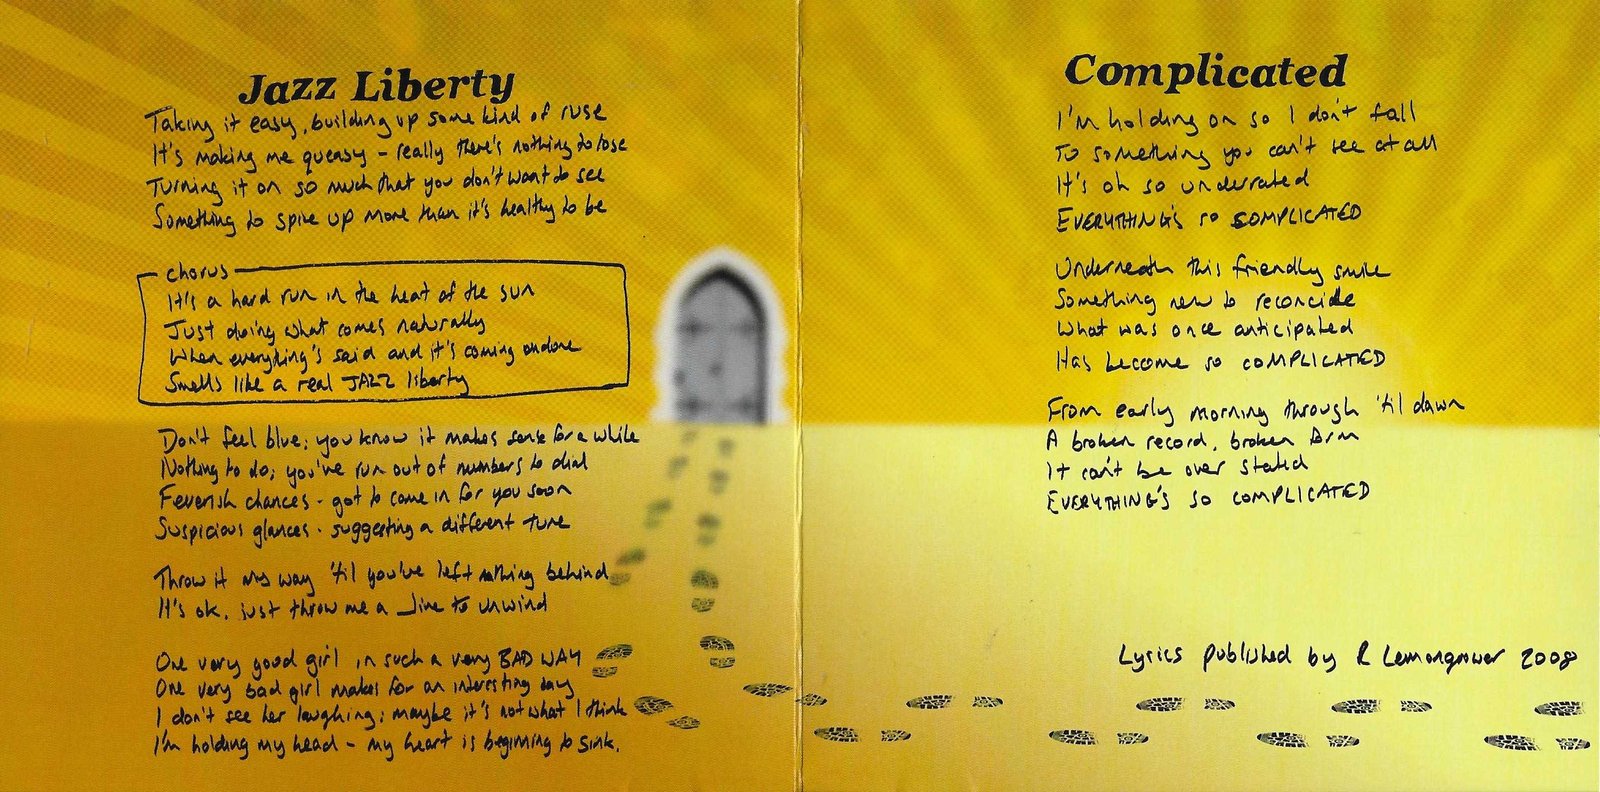 Jazz Liberty
Taking it easy, building up some kind of ruse
It's making me queasy - really there's nothing to lose
Turning it on so much that you don't want to see
Something to spice up more than it's healthy to be
chorus
It's a hard run in the heat of the sun
Just doing what comes naturally
When everything's said and it's coming undone
Smells like a real JAZZ liberty
Don't feel blue; you know it makes sense for a while
Nothing to do; you've run out of numbers to dial
Feverish chances - got to come in for you soon
Suspicious glances - suggesting a different tune
Throw it my way 'til you've left nothing behind
It's ok, just throw me a line to unwind
One very good girl in such a very BAD WAY
One very bad girl makes for an interesting day
I don't see her laughing; maybe it's not what I think
I'm holding my head - my heart is beginning to sink.
Complicated
I'm holding on so I don't fall
To something you can't see at all
It's oh so underrated
EVERYTHING'S so COMPLICATED
Underneath this friendly smile
Something new to reconcile
What was once anticipated
Has become so COMPLICATED
From early morning through 'til dawn
A broken record, broken Arm
It can't be over stated
EVERYTHING'S so COMPLICATED
Lyrics published by R Lemongrower 2008